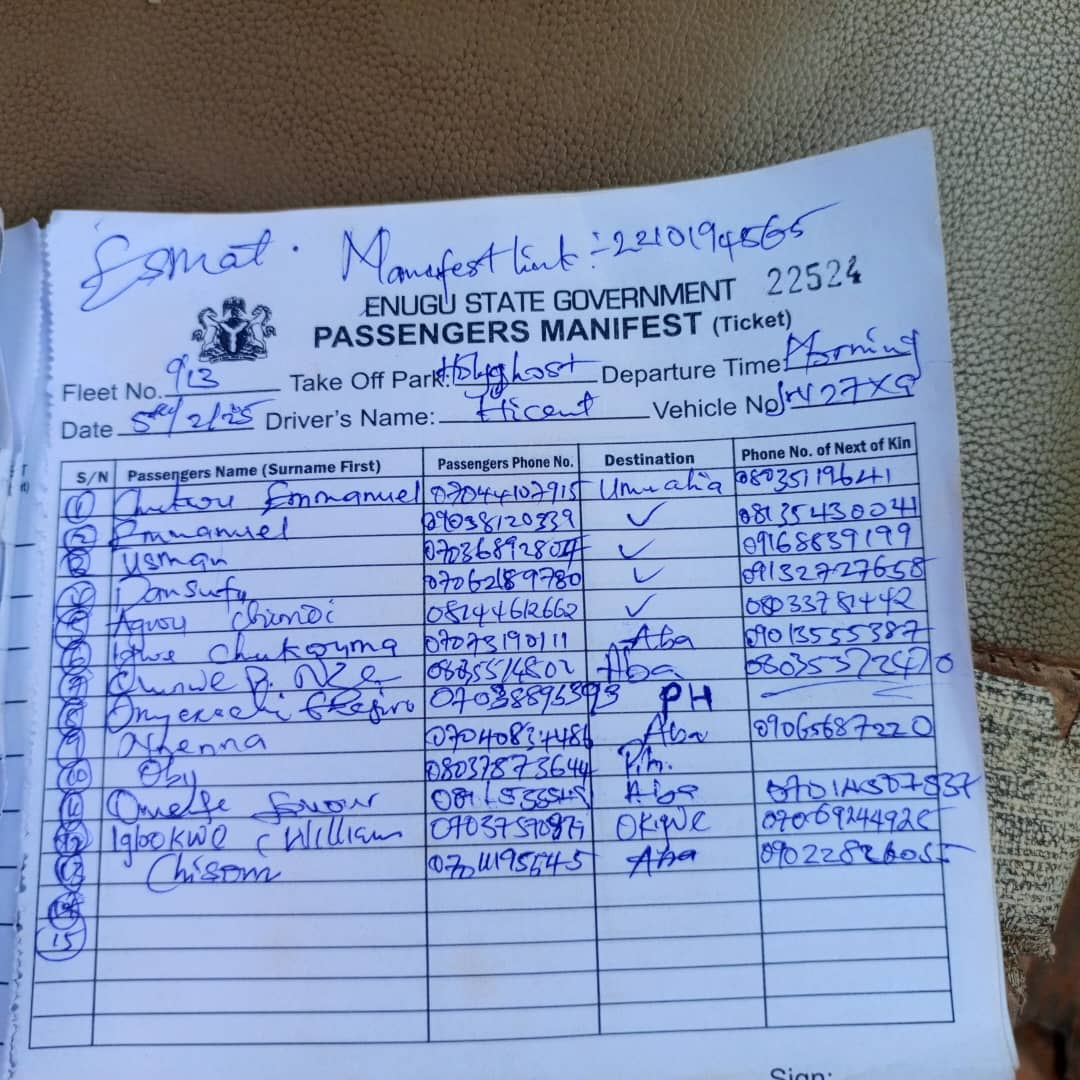 Esmat. Manifest link:- 2210194565
ENUGU STATE GOVERNMENT 22524
PASSENGERS MANIFEST (Ticket)
Fleet No. 913 Take Off Park: Holyghost Departure Time: Morning
Date 5th/2/25 Driver's Name: Hicent Vehicle No 27XG
S/N Passengers Name (Surname First) Passengers Phone No. Destination Phone No. of Next of Kin
1 Emmanuel 07044107915 Umuahia 08035119641
2 Emmanuel 09038120339 ✓ 08135430041
3 Usman 07036892804 ✓ 09168839199
4 Dansufu 07062189780 ✓ 09132727658
5 Aguou 08144612662 ✓ 08033781442
6 Igwe Chukouma 07073190111 Aba 09013555387
7 Chinwe P. 08035514802 Aba 08035372470
8 07038896393 PH
9 07040834486 Aba 09065687220
10 Oby 08037873644 P.h.
11 Omelfe Aba
12 Igbokwe C William 07037590879 Okigwe 07069244925
13 Chisom 07011195545 Aba 09022826055
14
15
Sign: